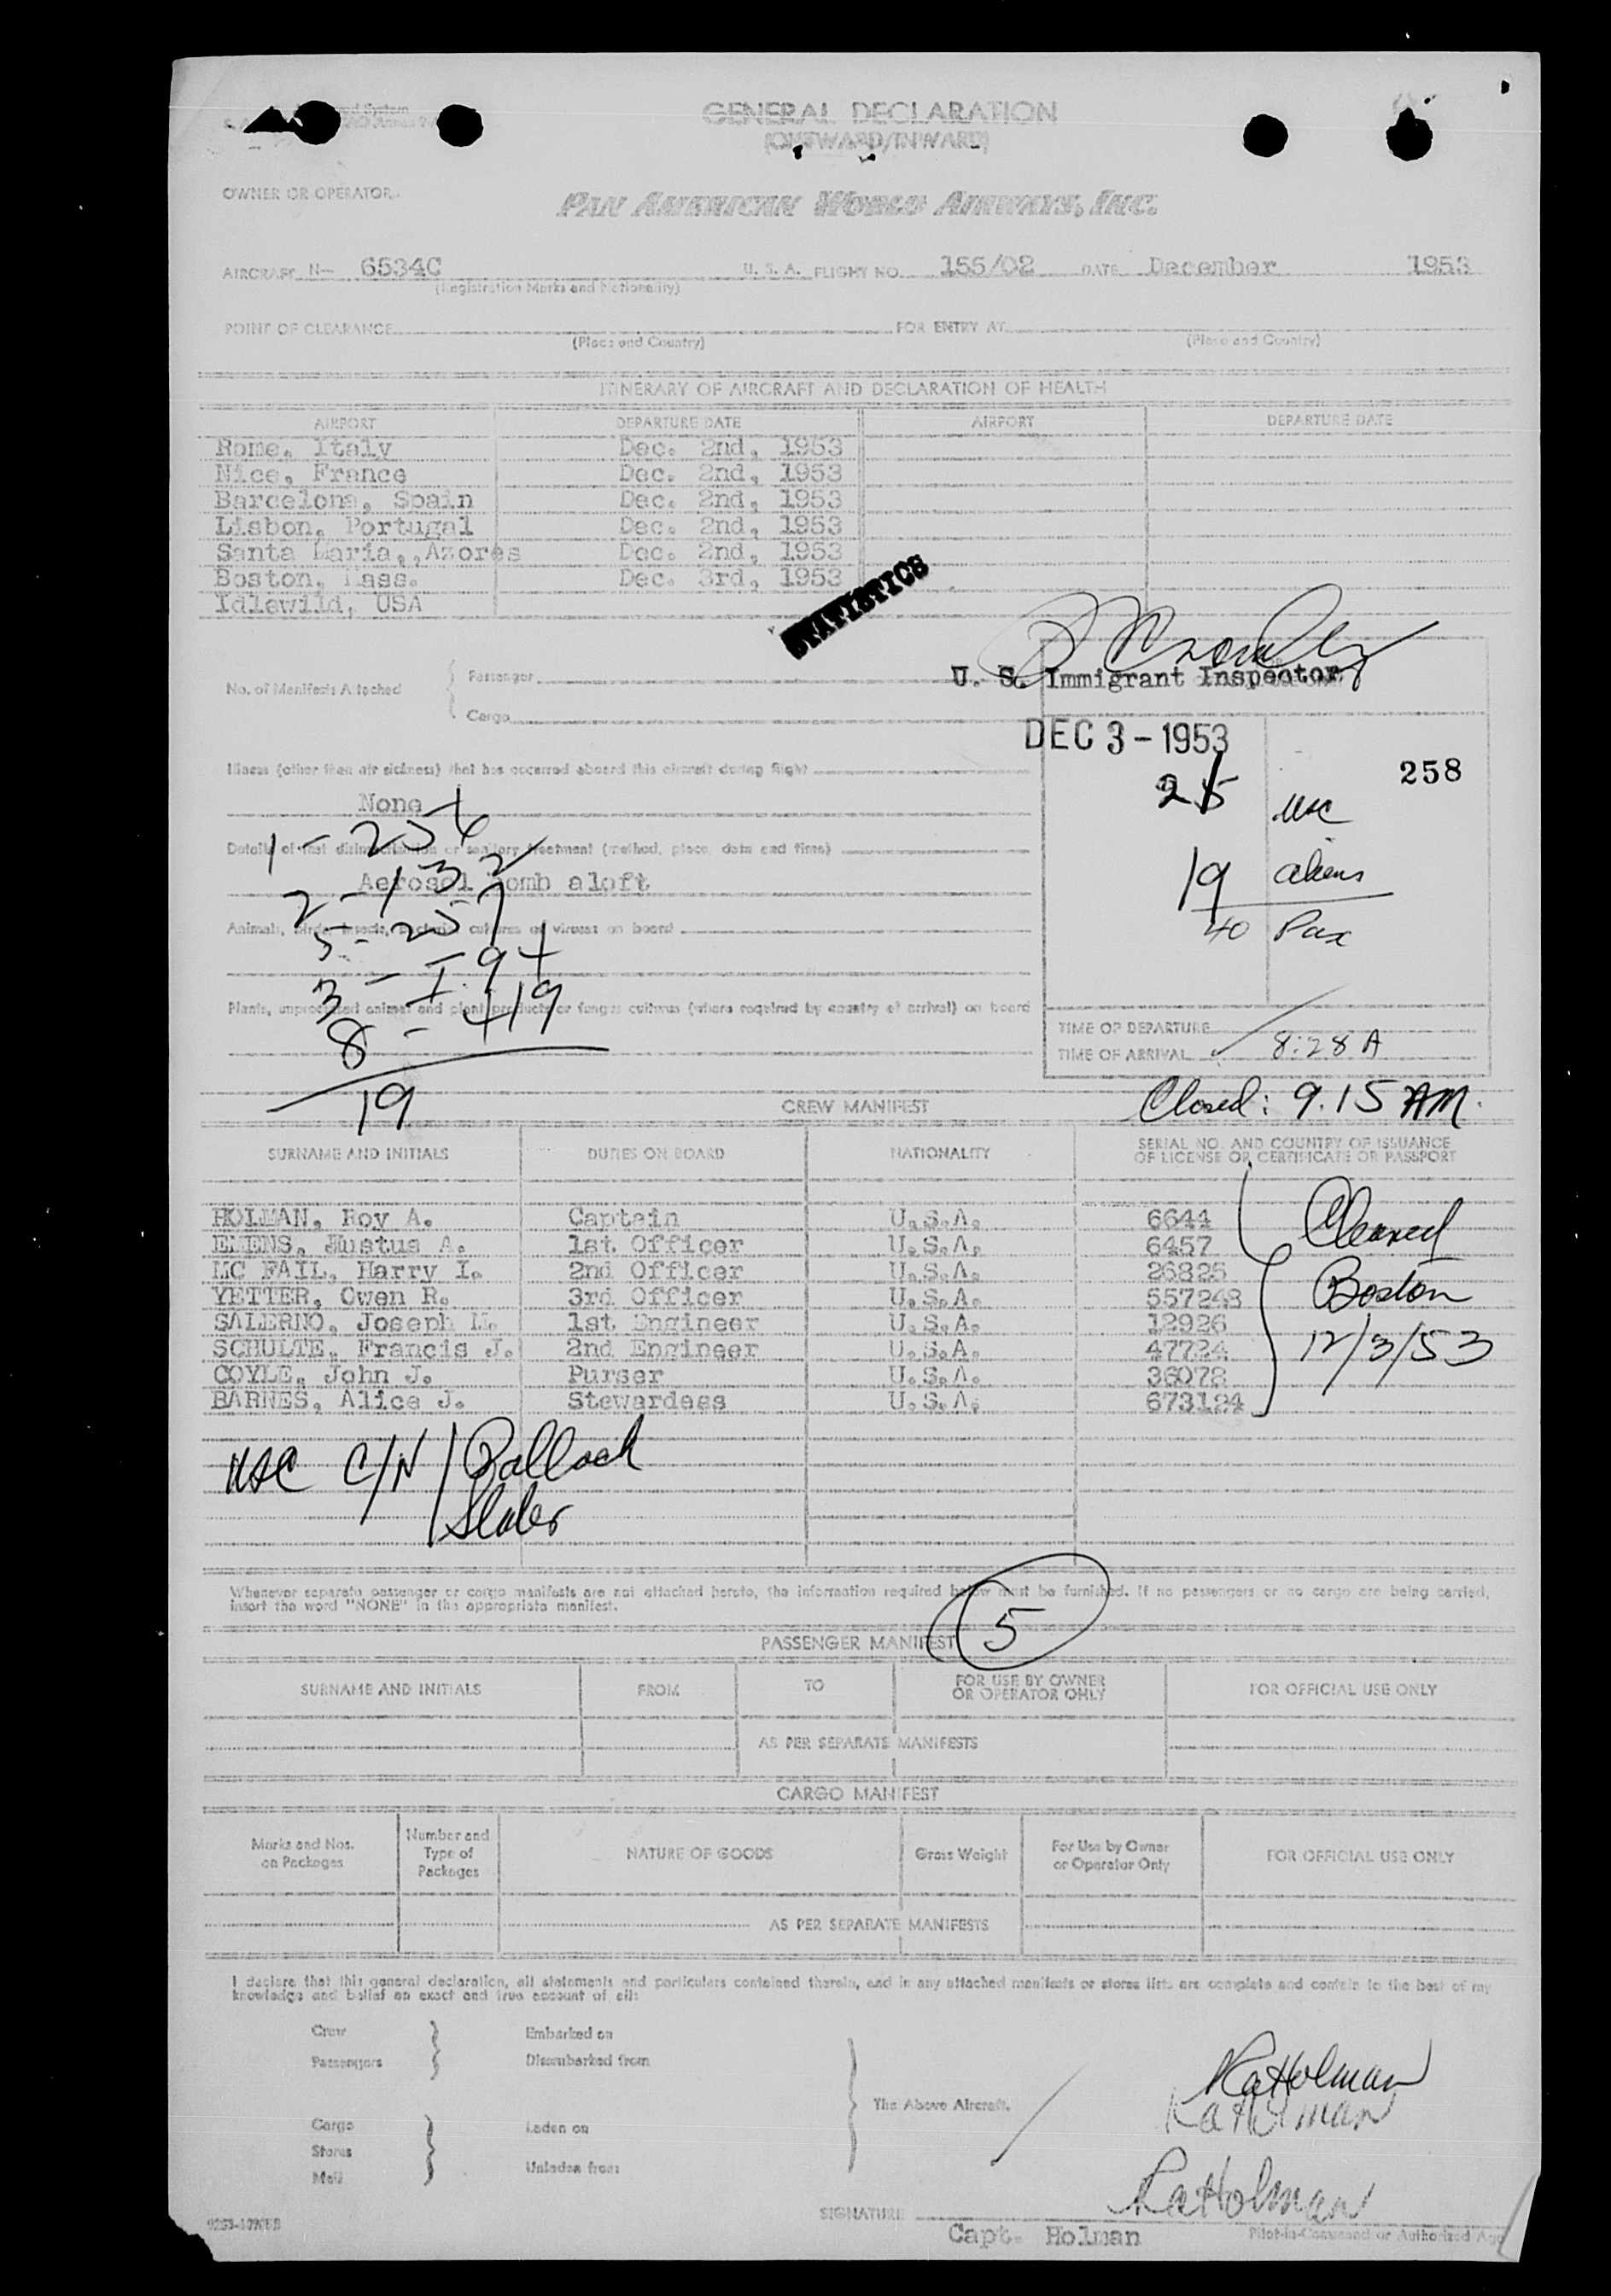 GENERAL DECLARATION
(OUTWARD/INWARD)
OWNER OR OPERATOR
PAN AMERICAN WORLD AIRWAYS, INC.
AIRCRAFT N- 6534C U. S. A. FLIGHT NO. 155/02 DATE December 1953
(Registration Marks and Nationality)
POINT OF CLEARANCE FOR ENTRY AT
(Place and Country) (Place and Country)
ITINERARY OF AIRCRAFT AND DECLARATION OF HEALTH
AIRPORT DEPARTURE DATE AIRPORT DEPARTURE DATE
Rome, Italy Dec. 2nd, 1953
Nice, France Dec. 2nd, 1953
Barcelona, Spain Dec. 2nd, 1953
Lisbon, Portugal Dec. 2nd, 1953
Santa Maria,,Azores Dec. 2nd, 1953
Boston, Mass. Dec. 3rd, 1953
Idlewild, USA
STATISTICS
U. S. Immigrant Inspector
No. of Manifests Attached
Passenger
Cargo
DEC 3 - 1953
258
Illness (other than air sickness) that has occurred aboard this aircraft during flight
None
Details of last disinsectization or sanitary treatment (method, place, date and time)
Aerosol bomb aloft
Animals, birds, insects, bacterial cultures or viruses on board
Plants, unprocessed animal and plant products or fungus cultures (where required by country of arrival) on board
usc
19 aliens
40 Pax
5 - 257
8 - 419
19
TIME OF DEPARTURE
TIME OF ARRIVAL 8:28 A
Closed: 9.15 AM.
CREW MANIFEST
SURNAME AND INITIALS DUTIES ON BOARD NATIONALITY SERIAL NO. AND COUNTRY OF ISSUANCE
OF LICENSE OR CERTIFICATE OR PASSPORT
HOLMAN, Roy A. Captain U.S.A. 6644
EMENS, Justus A. 1st Officer U.S.A. 6457
MC FAIL, Harry I. 2nd Officer U.S.A. 26825
YETTER, Owen R. 3rd Officer U.S.A. 557248
SALERNO, Joseph M. 1st Engineer U.S.A. 12926
SCHULTE, Francis J. 2nd Engineer U.S.A. 47724
COYLE, John J. Purser U.S.A. 36078
BARNES, Alice J. Stewardess U.S.A. 673124
Cleared
Boston
12/3/53
USC C/N Pollack
Slater
Whenever separate passenger or cargo manifests are not attached hereto, the information required below must be furnished. If no passengers or no cargo are being carried,
insert the word "NONE" in the appropriate manifest.
5
PASSENGER MANIFEST
SURNAME AND INITIALS FROM TO FOR USE BY OWNER
OR OPERATOR ONLY FOR OFFICIAL USE ONLY
AS PER SEPARATE MANIFESTS
CARGO MANIFEST
Marks and Nos.
on Packages Number and
Type of
Packages NATURE OF GOODS Gross Weight For Use by Owner
or Operator Only FOR OFFICIAL USE ONLY
AS PER SEPARATE MANIFESTS
I declare that this general declaration, all statements and particulars contained therein, and in any attached manifests or stores lists are complete and contain to the best of my
knowledge and belief an exact and true account of all:
Crew Embarked on
Passengers Disembarked from
The Above Aircraft.
Cargo Laden on
Stores
Mail Unladen from
RaHolman
RaHolman
RaHolman
SIGNATURE
Capt. Holman Pilot-in-Command or Authorized